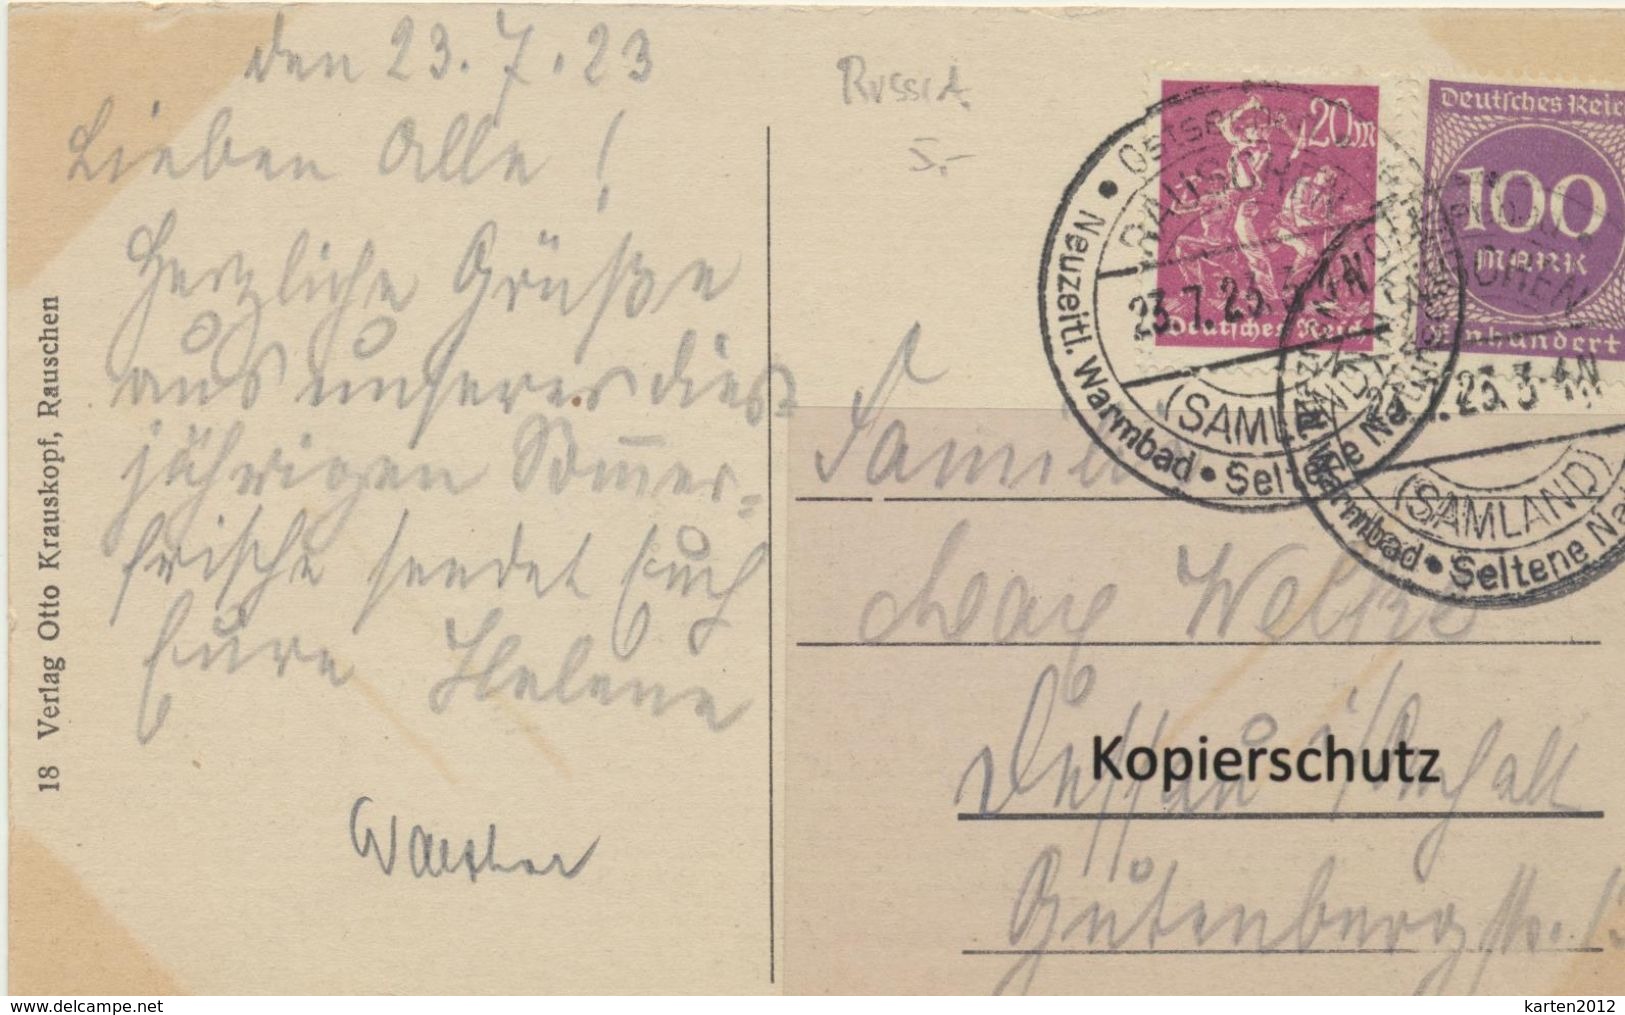 den 23.7.23
Lieben Alle!
Herzliche Grüße
aus unserer dies-
jährigen Sommer-
frische sendet Euch
Eure Helene
Walther
18 Verlag Otto Krauskopf, Rauschen
Russia
5.-
20m
Deutsches Reich
Deutsches Reich
100
MARK
Einhundert
Ostseebad
RAUSCHEN
23.7.23.3-4N
(SAMLAND)
Neuzeitl. Warmbad • Seltene Naturschönheiten
RAUSCHEN
23.7.23.3-4N
(SAMLAND)
Warmbad • Seltene Na
Familie
Max Welke
Dessau i/Anhalt
Kopierschutz
Gutenbergstr.
www.delcampe.net
karten2012